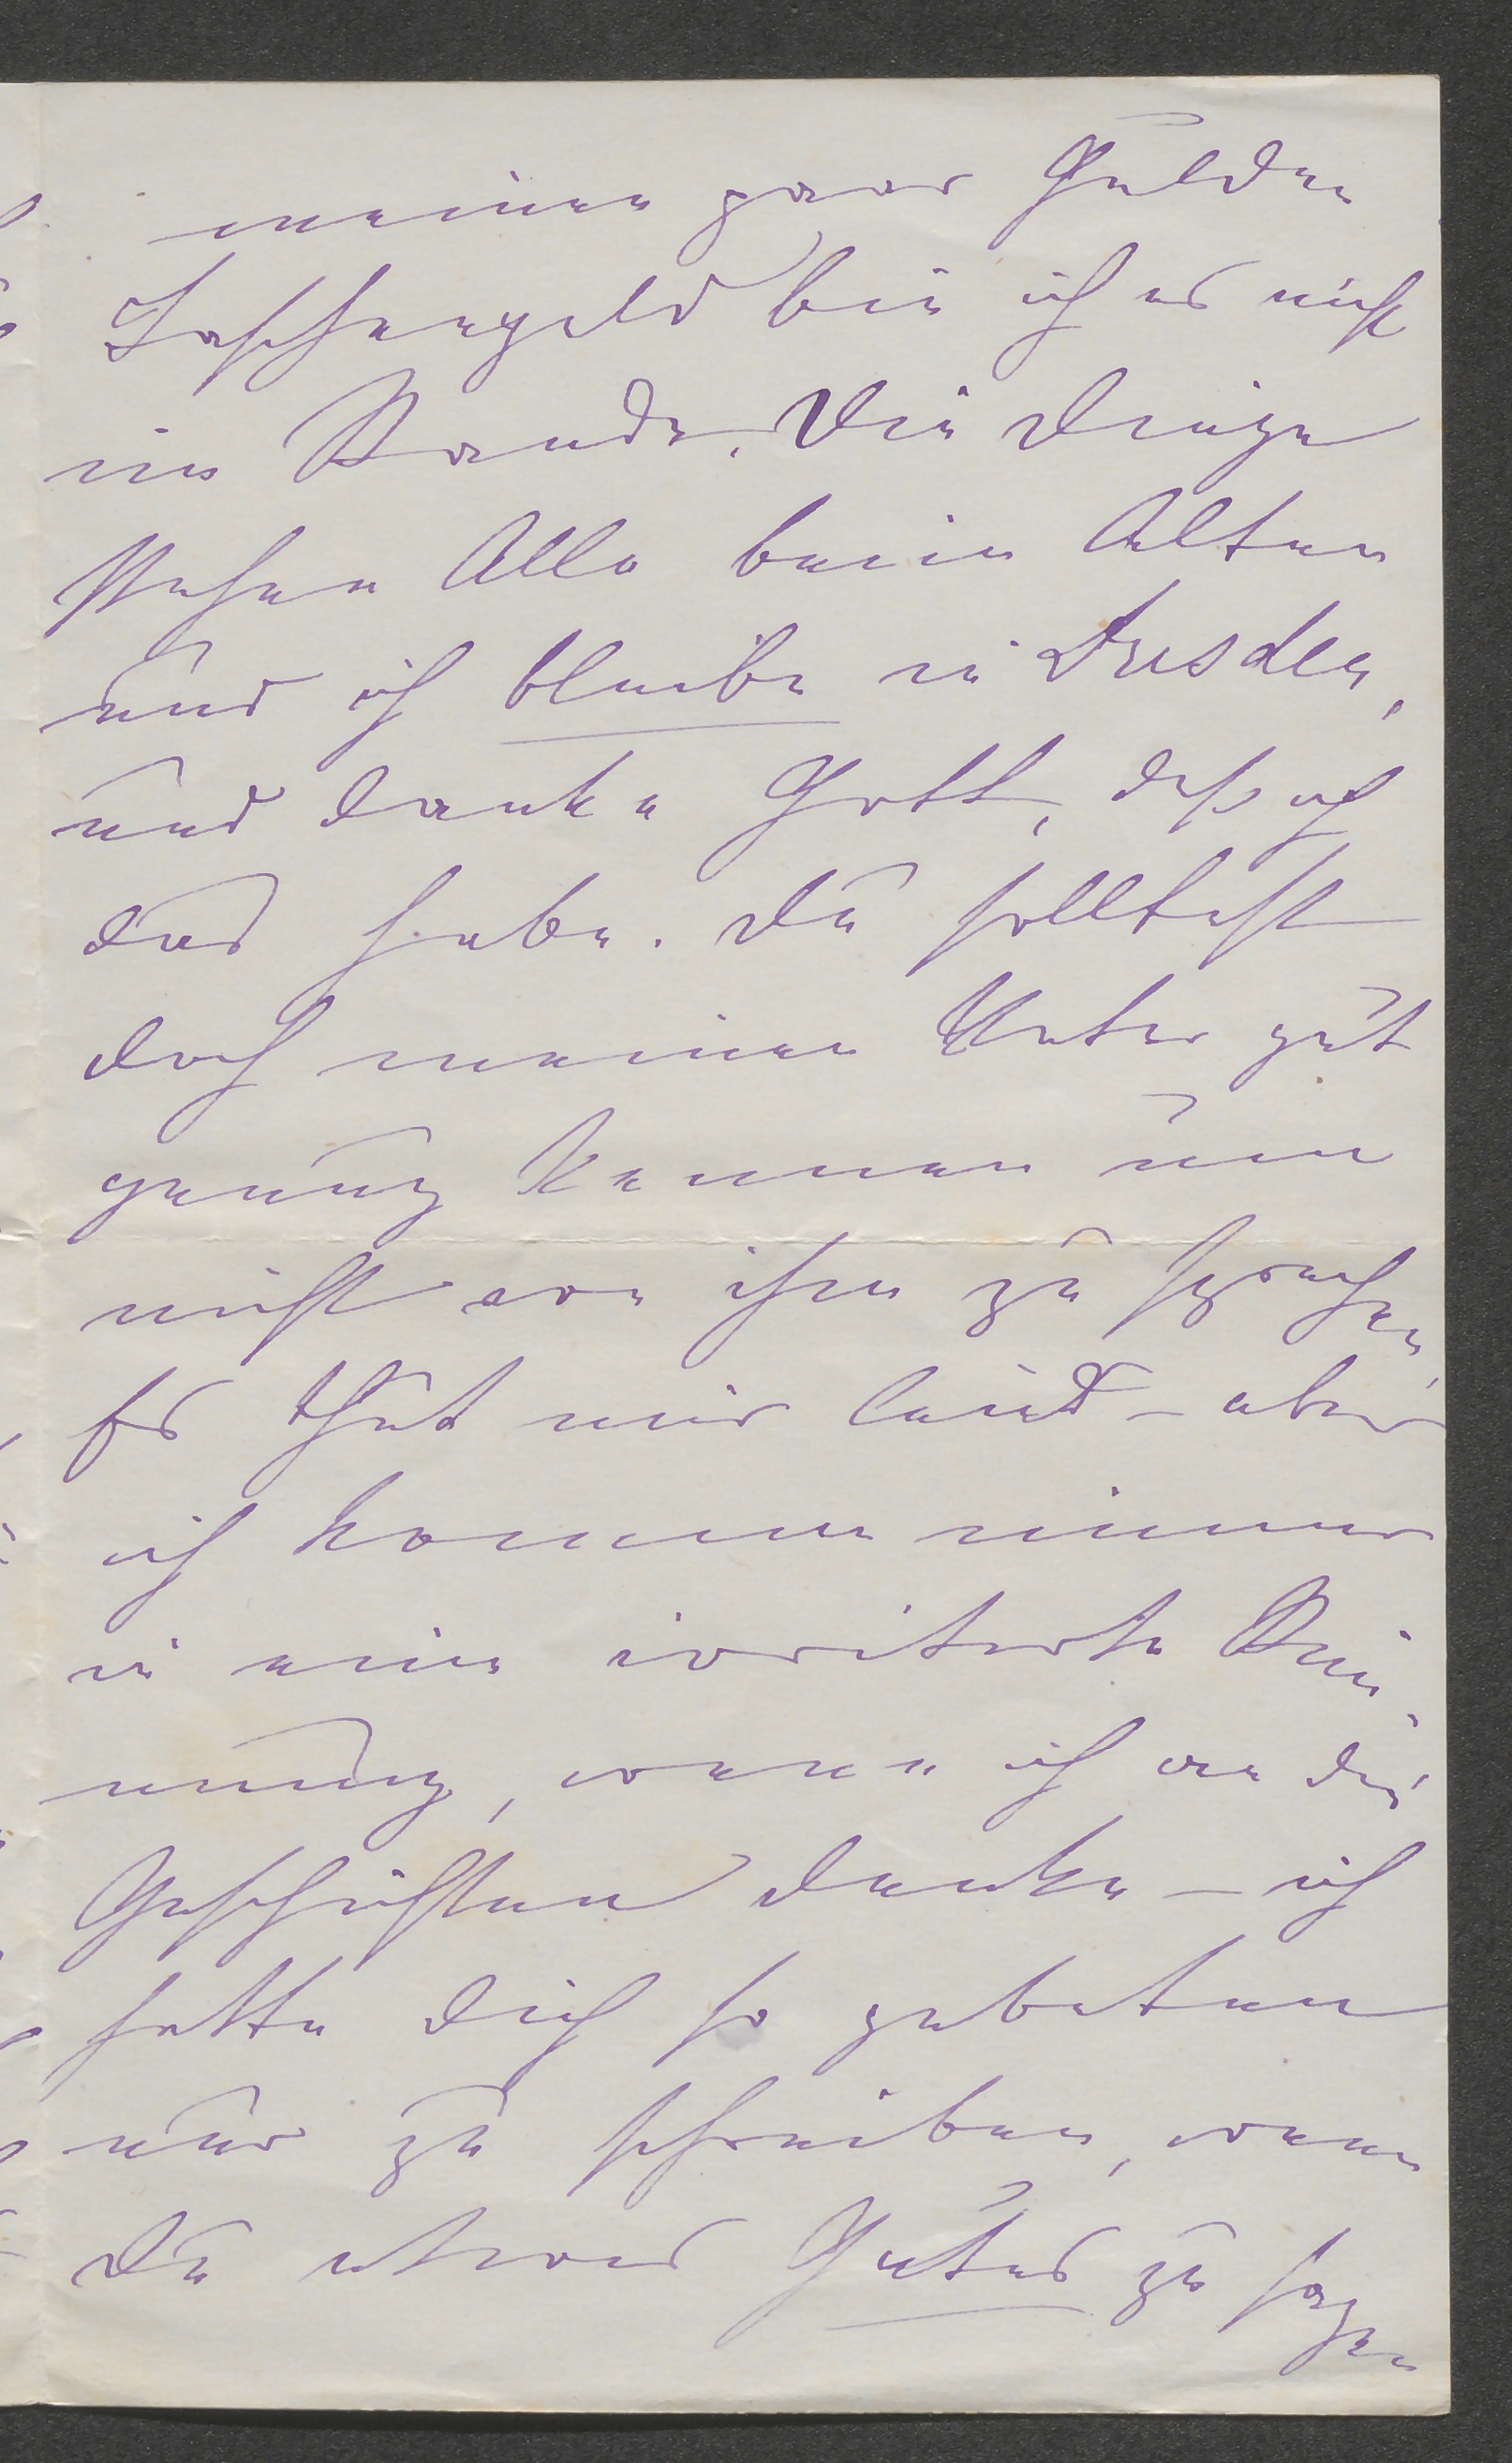 meinen paar Gulden
Taschengeld bin ich es nicht
im Stande. Die Dinge
stehen Alle beim Alten
und ich bleibe in Dresden,
und danke Gott, daß ich
das habe. Du solltest
doch meinen Vater gut
genug kennen um
nicht von ihm zu sprechen,
Es thut mir leid – aber
ich komme immer
in eine irritirte Stim-
mung, wenn ich an die
Geschichten denke – ich
hatte Dich so gebeten
nur zu schreiben, wenn
Du etwas Gutes zu sagen